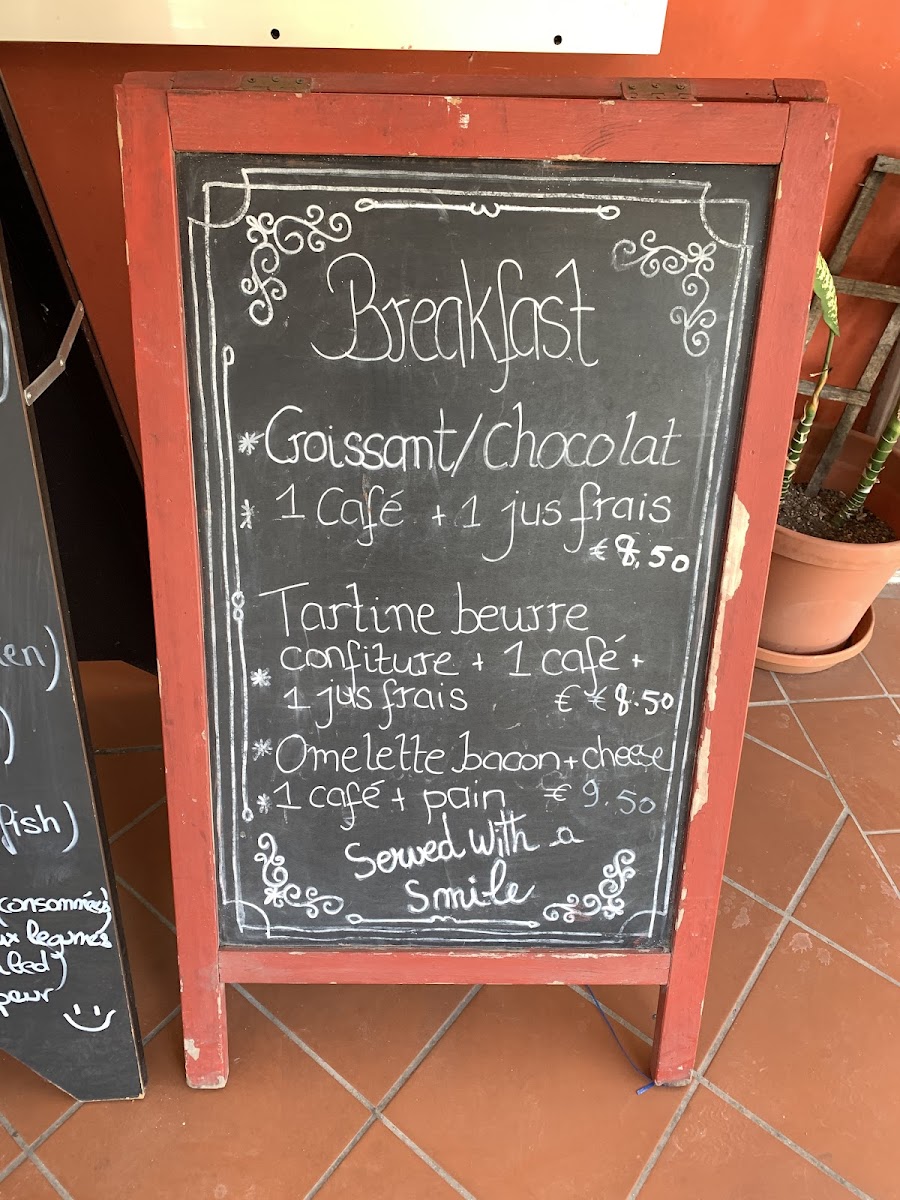 Breakfast
* Croissant/Chocolat
* 1 Café + 1 jus frais
€ 8,50
Tartine beurre
confiture + 1 café +
* 1 jus frais € € 8.50
* Omelette bacon + cheese
* 1 café + pain € 9.50
Served With a
Smile
en)
)
fish)
consommée)
ux legumes
led)
peur